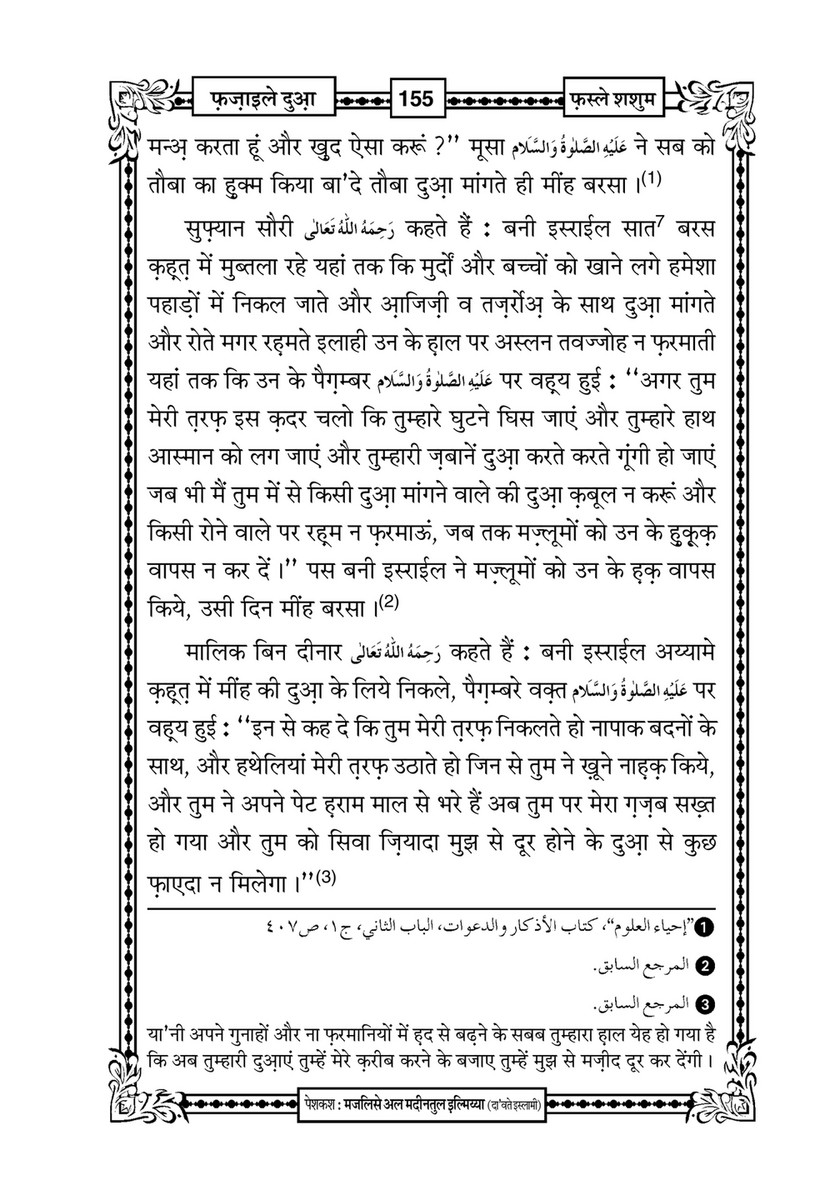 फ़ज़ाइले दुआ़
155
फ़स्ले शशुम
मन्अ़ करता हूं और खु़द ऐसा करूं ?’’ मूसा عَلَيْهِ الصَّلٰوةُ وَالسَّلَام ने सब को
तौबा का हु़क्म किया बा'दे तौबा दुआ़ मांगते ही मींह बरसा ।(1)
सुफ़्यान सौरी رَحِمَهُ اللّٰهُ تَعَالٰى कहते हैं : बनी इस्राईल सात7 बरस
क़ह़त़ में मुब्तला रहे यहां तक कि मुर्दों और बच्चों को खाने लगे हमेशा
पहाड़ों में निकल जाते और आ़जिज़ी व तज़र्रोअ़ के साथ दुआ़ मांगते
और रोते मगर रह़मते इलाही उन के ह़ाल पर अस्लन तवज्जोह न फ़रमाती
यहां तक कि उन के पैग़म्बर عَلَيْهِ الصَّلٰوةُ وَالسَّلَام पर वह़्य हुई : ‘‘अगर तुम
मेरी त़रफ़ इस क़दर चलो कि तुम्हारे घुटने घिस जाएं और तुम्हारे हाथ
आस्मान को लग जाएं और तुम्हारी ज़बानें दुआ़ करते करते गूंगी हो जाएं
जब भी मैं तुम में से किसी दुआ़ मांगने वाले की दुआ़ क़बूल न करूं और
किसी रोने वाले पर रह़्म न फ़रमाऊं, जब तक मज़्लूमों को उन के हु़क़ूक़
वापस न कर दें ।’’ पस बनी इस्राईल ने मज़्लूमों को उन के ह़क़ वापस
किये, उसी दिन मींह बरसा ।(2)
मालिक बिन दीनार رَحِمَهُ اللّٰهُ تَعَالٰى कहते हैं : बनी इस्राईल अय्यामे
क़ह़त़ में मींह की दुआ़ के लिये निकले, पैग़म्बरे वक़्त عَلَيْهِ الصَّلٰوةُ وَالسَّلَام पर
वह़्य हुई : ‘‘इन से कह दे कि तुम मेरी त़रफ़ निकलते हो नापाक बदनों के
साथ, और हथेलियां मेरी त़रफ़ उठाते हो जिन से तुम ने ख़ूने नाह़क़ किये,
और तुम ने अपने पेट ह़राम माल से भरे हैं अब तुम पर मेरा ग़ज़ब सख़्त
हो गया और तुम को सिवा ज़ियादा मुझ से दूर होने के दुआ़ से कुछ
फ़ाएदा न मिलेगा ।’’(3)
❶ ”إحياء العلوم“، كتاب الأذكار والدعوات، الباب الثاني، ج١، ص٤٠٧
❷ المرجع السابق.
❸ المرجع السابق.
या'नी अपने गुनाहों और ना फ़रमानियों में ह़द से बढ़ने के सबब तुम्हारा ह़ाल येह हो गया है
कि अब तुम्हारी दुआ़एं तुम्हें मेरे क़रीब करने के बजाए तुम्हें मुझ से मज़ीद दूर कर देंगी ।
पेशकश : मजलिसे अल मदीनतुल इ़ल्मिय्या (दा'वते इस्लामी)